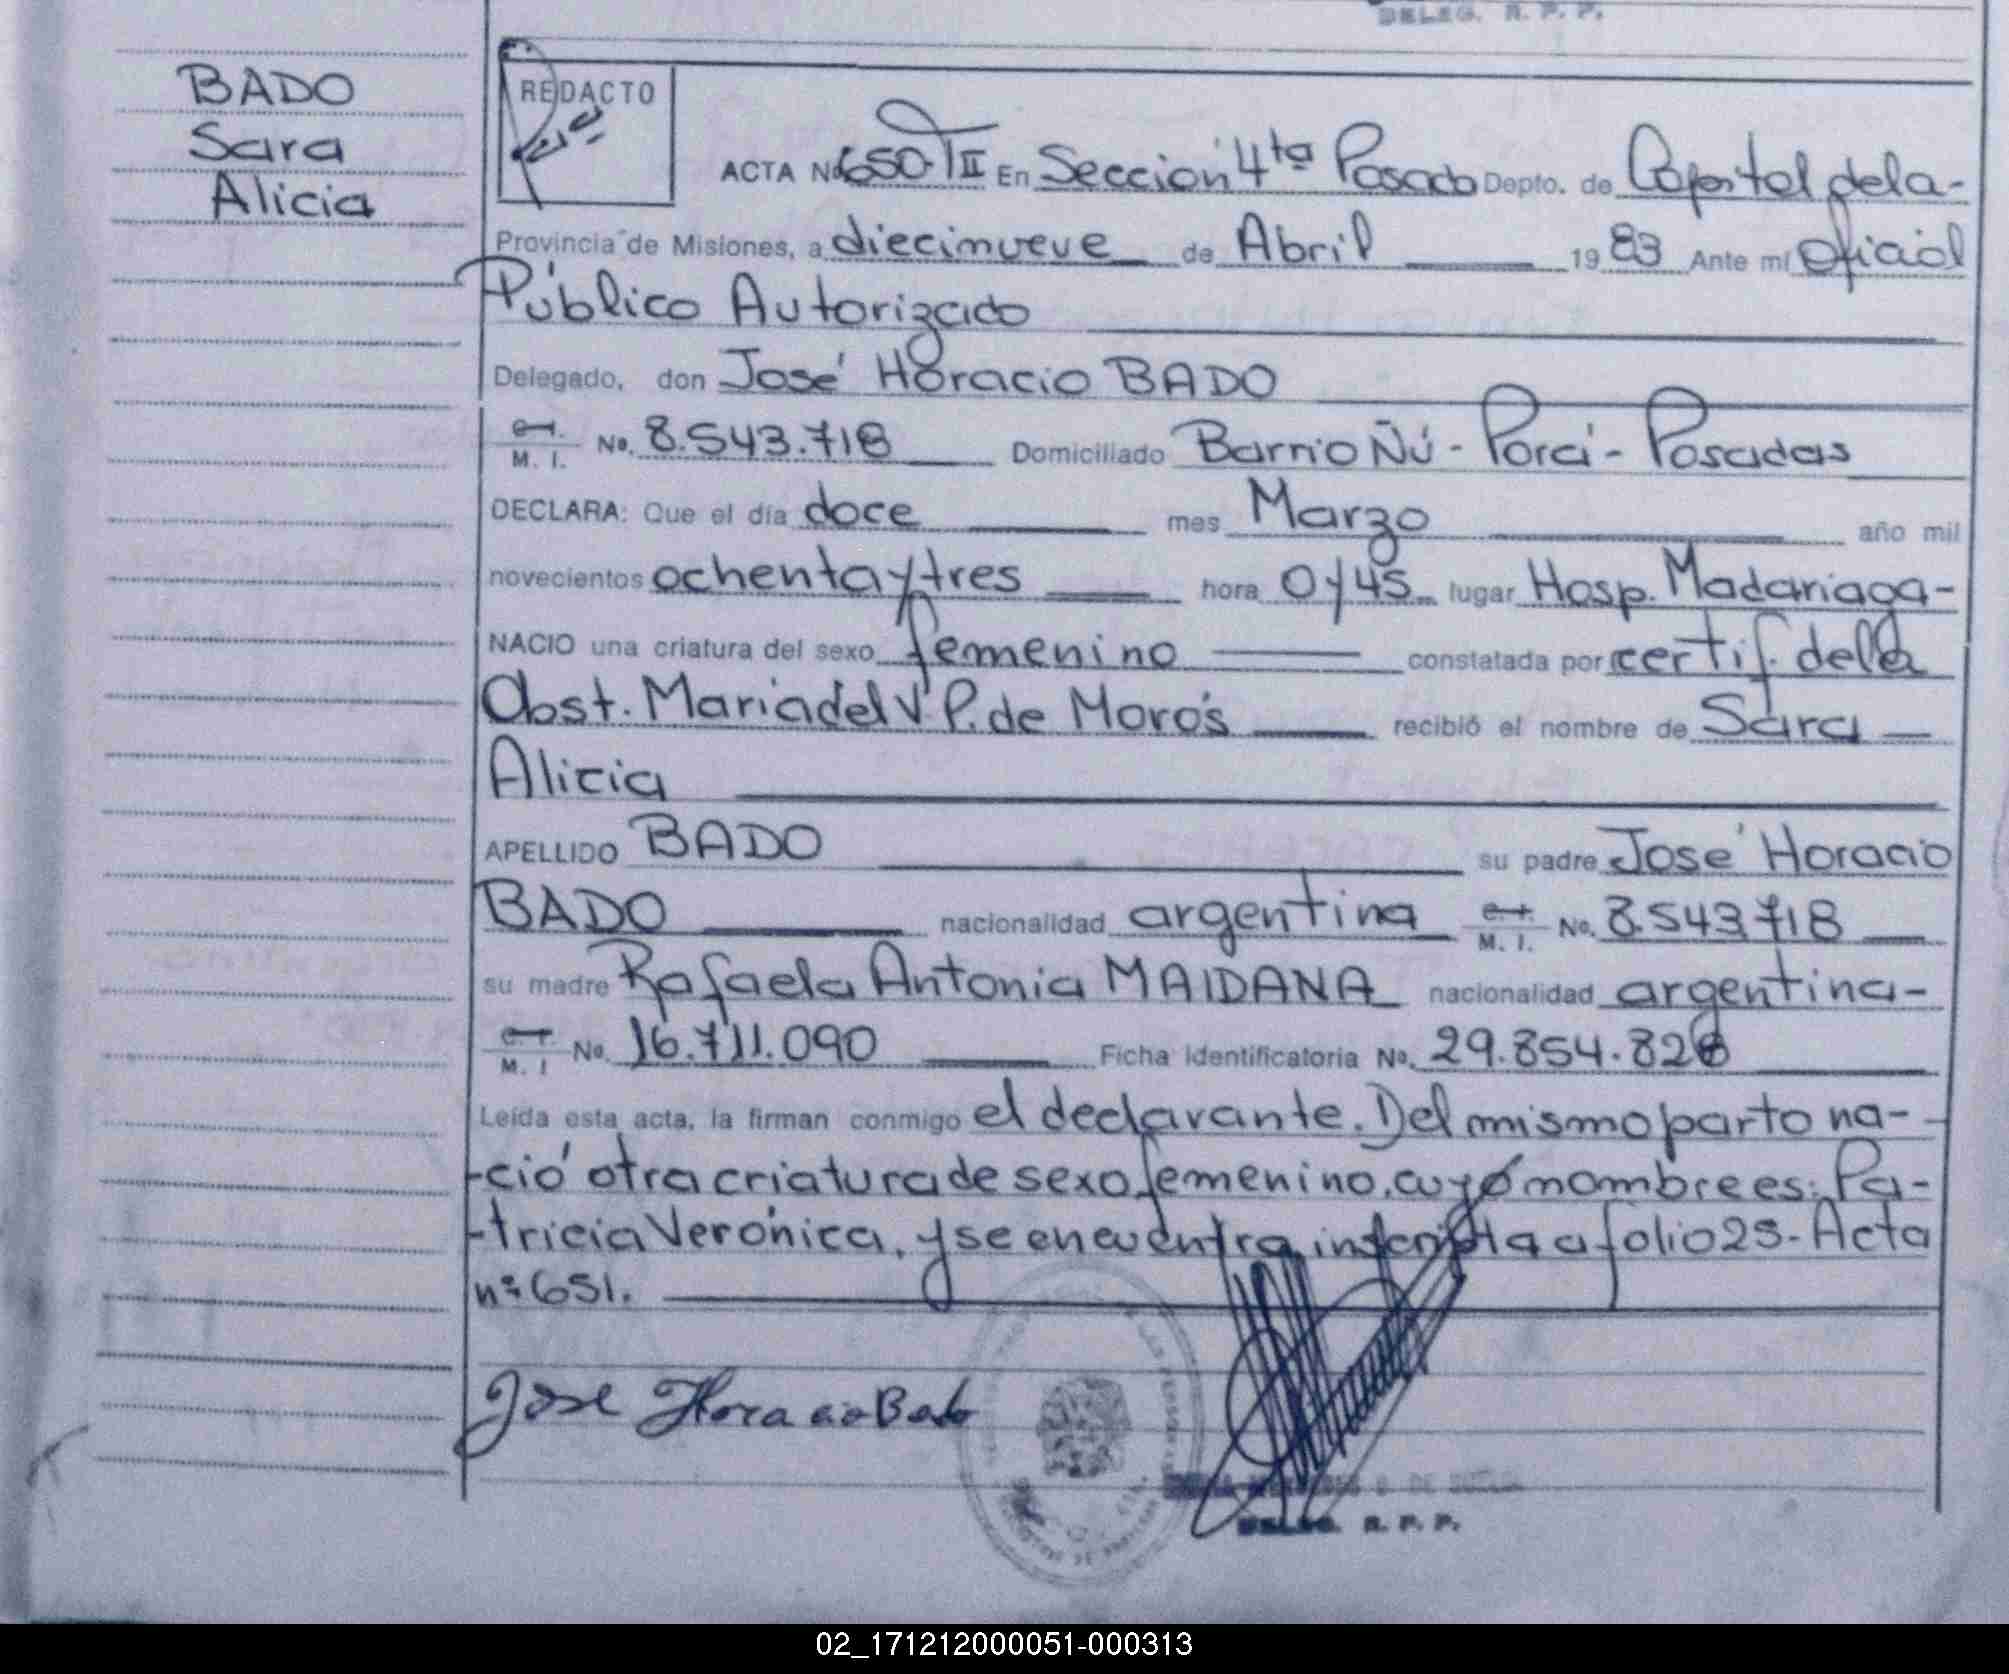 DELEG. R. P. P.
BADO
Sara
Alicia
REDACTO
ACTA Nº 650-TII En Sección 4ta Posadas Depto. de Capital de la-
Provincia de Misiones, a diecinueve de Abril 19 83 Ante mí Oficial
Público Autorizado
Delegado, don José Horacio BADO
C.I. M. I. No. 8.543.718 Domiciliado Barrio Ñú - Porá - Posadas
DECLARA: Que el día doce mes Marzo año mil
novecientos ochenta y tres hora 0y45 lugar Hosp. Madariaga-
NACIO una criatura del sexo femenino constatada por certif. de la
Obst. María del V P. de Morós recibió el nombre de Sara
Alicia
APELLIDO BADO su padre José Horacio
BADO nacionalidad argentina C.I. M. I. No. 8.543.718
su madre Rafaela Antonia MAIDANA nacionalidad argentina-
C.I. M. I No. 16.711.090 Ficha Identificatoria No. 29.854.828
Leída esta acta, la firman conmigo el declarante. Del mismo parto na-
-ció otra criatura de sexo femenino, cuyo nombre es: Pa-
-tricia Verónica, y se encuentra inscripta a folio 25- Acta
nº 651.
José Horacio Bado
DELEG. R. P. P.
02_171212000051-000313